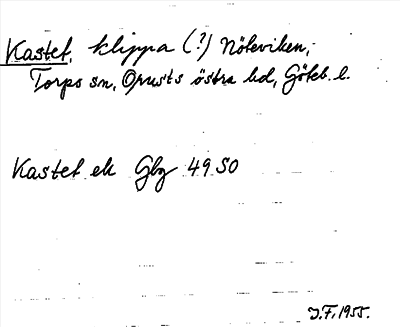 Kastet, klippa (?) Nöteviken,
Torps sn, Orusts östra hd, Göteb. l.
Kastet ek Gbg 49 SO
J.F. 1955.